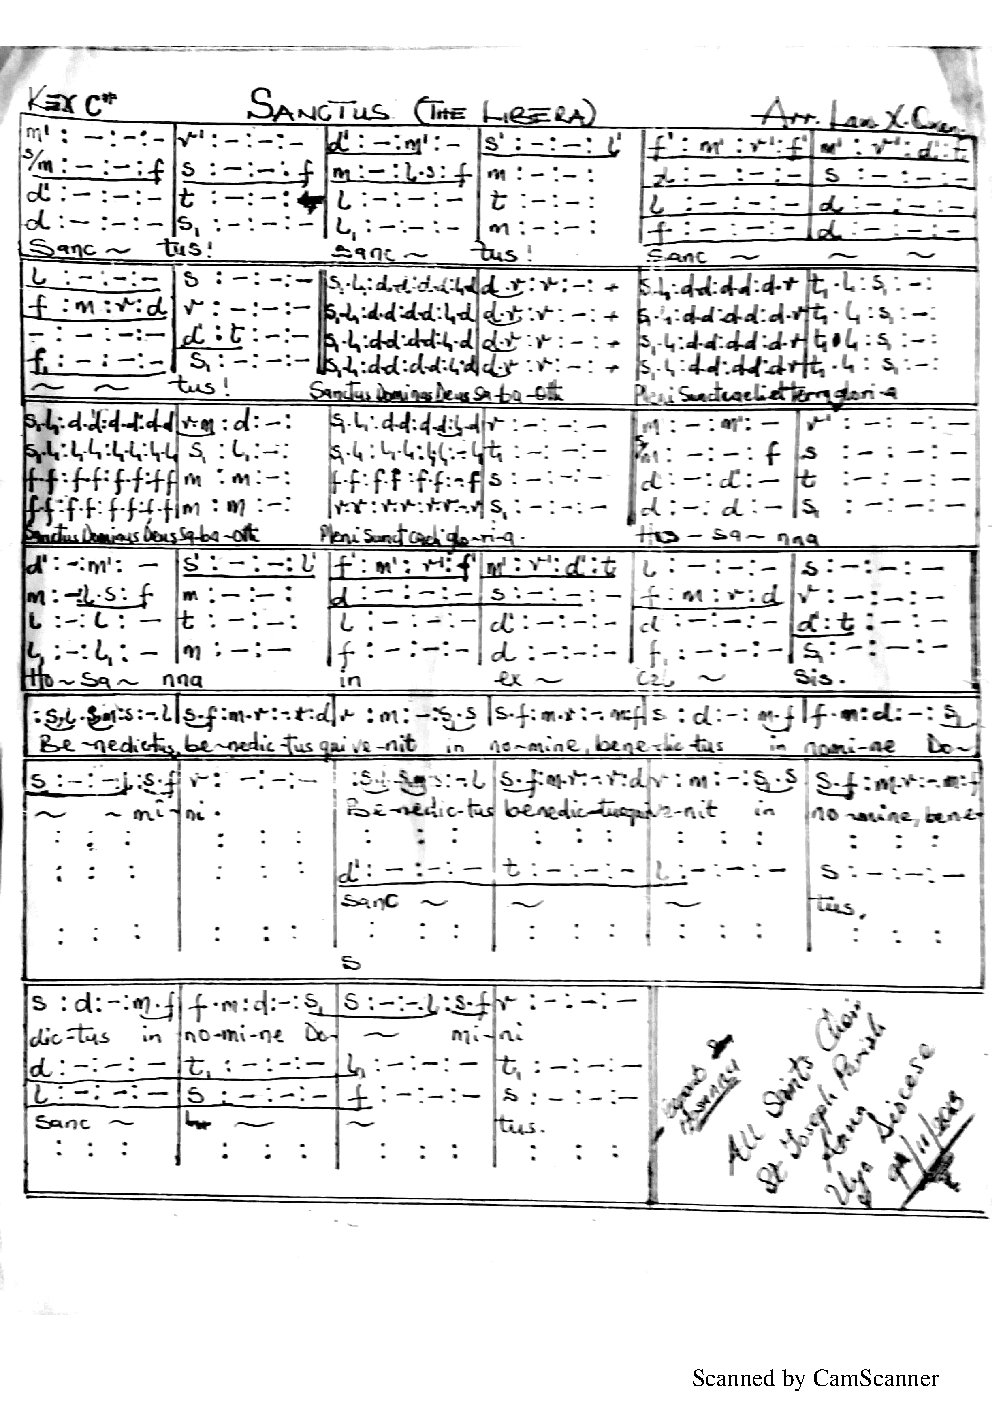 KEY C# SANCTUS (THE LIBERA) Arr.
m' : – : – : – | r' : – : – : – | d' : – : m' : – | s' : – : – : l' | f' : m' : r' : f' | m' : r' : d' : t
s/m : – : – : f | s : – : – : f | m : – : l . s : f | m : – : – : | d : – : – : – | s : – : – : –
d' : – : – : – | t : – : – : | l : – : – : – | t : – : – : | l : – : – : – | d : – : – : –
d : – : – : – | s₁ : – : – : – | l₁ : – : – : – | m : – : – : | f : – : – : – | d : – : – : –
Sanc ~ tus! Sanc ~ tus! Sanc ~ ~ ~
l : – : – : – | s : – : – : – | s₁.l₁:d.d:d.d:l₁.d | d.r : r : – : + | s₁.l₁:d.d:d.d:d.r | t₁ . l₁ : s₁ : – :
f : m : r : d | r : – : – : – | s₁.l₁:d.d:d.d:l₁.d | d.r : r : – : + | s₁.l₁:d.d:d.d:d.r | t₁ . l₁ : s₁ : – :
– : – : – : – | d' : t : – : – | s₁.l₁:d.d:d.d:l₁.d | d.r : r : – : + | s₁.l₁:d.d:d.d:d.r | t₁ . l₁ : s₁ : – :
f₁ : – : – : – | s₁ : – : – : – | s₁.l₁:d.d:d.d:l₁.d | d.r : r : – : + | s₁.l₁:d.d:d.d:d.r | t₁ . l₁ : s₁ : – :
~ ~ tus! Sanctus Dominus Deus Sa-ba-oth Pleni Sunt caeli et terra glori-a
s₁.l₁:d.d:d.d:d.d | r.m : d : – : | s₁.l₁:d.d:d.d:l₁.d | r : – : – : – | m : – : m' : – | r' : – : – : –
s₁.l₁:l₁.l₁:l₁.l₁:l₁.l₁ | s₁ : l₁ : – : | s₁.l₁:l₁.l₁:l₁.l₁:–.l₁ | t₁ : – : – : – | s/m : – : – : f | s : – : – : –
f.f:f.f:f.f:f.f | m : m : – : | f.f:f.f:f.f:–.f | s : – : – : – | d : – : d' : – | t : – : – : –
f.f:f.f:f.f:f.f | m : m : – : | r.r:r.r:r.r:–.r | s₁ : – : – : – | d : – : d : – | s₁ : – : – : –
Sanctus Dominus Deus Sa-ba-oth Pleni Sunt caeli glo-ri-a. Ho – sa ~ nna
d' : – : m' : – | s' : – : – : l' | f' : m' : r' : f' | m' : r' : d' : t | l : – : – : – | s : – : – : –
m : – . l . s : f | m : – : – : | d : – : – : – | s : – : – : – | f : m : r : d | r : – : – : –
l : – : l : – | t : – : – : | l : – : – : – | d' : – : – : – | d : – : – : – | d' : t : – : –
l₁ : – : l₁ : – | m : – : – | f : – : – : – | d : – : – : – | f₁ : – : – : – | s₁ : – : – : –
Ho ~ sa ~ nna in ex ~ cel ~ sis.
: s.l . s.m : s : – . l | s.f : m . r : – . r : d | r : m : – : s . s | s . f : m . r : – . m : f | s : d : – : m . f | f . m : d : – : s₁
Be ~nedictus, be-nedic-tus qui ve-nit in no-mine, benedictus in nomi-ne Do~
s : – : – . l : s . f | r : – : – : – | : s.l . s.m : s : – . l | s.f : m.r : – . r : d | r : m : – : s . s | s . f : m . r : – . m : f
~ ~ mi-ni. Be-nedic-tus benedic-tus qui ve-nit in no-mine, bene-
: : : | : : : | : : : | : : : | : : : | : : :
: : : | : : : | d' : – : – : – | t : – : – : – | l : – : – : – | s : – : – : –
sanc ~ ~ ~ tus.
: : : | : : : | : : : | : : : | : : : | : : :
s
s : d : – : m . f | f . m : d : – : s₁ | s : – : – . l : s . f | r : – : – : –
dic-tus in no-mi-ne Do- ~ mi-ni
d : – : – : – | t₁ : – : – : – | l₁ : – : – : – | t₁ : – : – : –
l : – : – : – | s : – : – : – | f : – : – : – | s : – : – : –
sanc ~ ~ ~ tus.
: : : | : : : | : : : | : : :
All Saints Choir
St. Joseph Parish
Uyo Diocese
Scanned by CamScanner